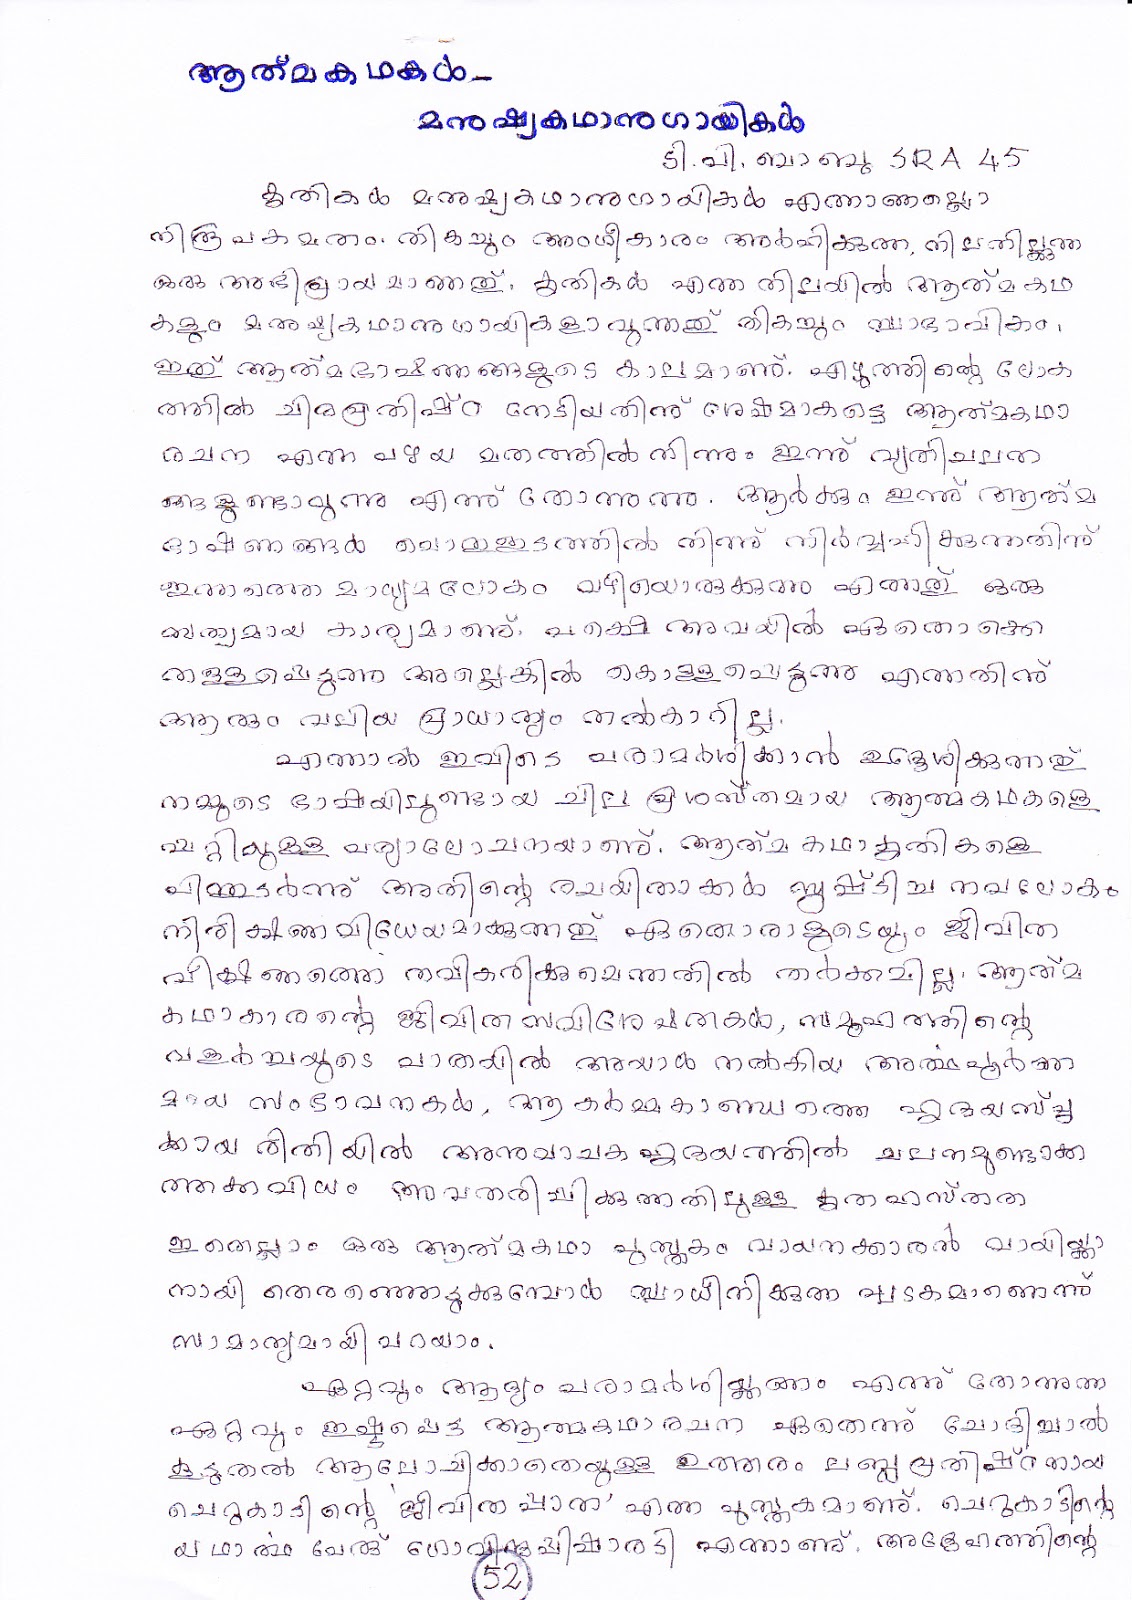 ആത്മകഥകൾ-
മനുഷ്യകഥാനുഗായികൾ
ടി.വി. ബാബു SRA 45
കൃതികൾ മനുഷ്യകഥാനുഗായികൾ എന്നാണല്ലൊ
നിരൂപകമതം. തികച്ചും അംഗീകാരം അർഹിക്കുന്ന, നിലനില്ക്കുന്ന
ഒരു അഭിപ്രായമാണത്. കൃതികൾ എന്ന നിലയിൽ ആത്മകഥ
കളും മനുഷ്യകഥാനുഗായികളാവുന്നത് തികച്ചും സ്വാഭാവികം.
ഇത് ആത്മഭാഷണങ്ങളുടെ കാലമാണ്. എഴുത്തിന്റെ ലോക
ത്തിൽ ചിരപ്രതിഷ്ഠ നേടിയതിന് ശേഷമാകട്ടെ ആത്മകഥാ
രചന എന്ന പഴയ മതത്തിൽനിന്നും ഇന്ന് വ്യതിചലന
ങ്ങളുണ്ടാവുന്നു എന്ന് തോന്നുന്നു. ആർക്കും ഇന്ന് ആത്മ
ഭാഷണങ്ങൾ പൊതുഇടത്തിൽ നിന്ന് നിർവ്വഹിക്കുന്നതിന്
ഇന്നത്തെ മാധ്യമലോകം വഴിയൊരുക്കുന്നു എന്നത് ഒരു
സത്യമായ കാര്യമാണ്. പക്ഷെ അവയിൽ ഏതൊക്കെ
തള്ളപ്പെടുന്നു അല്ലെങ്കിൽ കൊള്ളപ്പെടുന്നു എന്നതിന്
ആരും വലിയ പ്രാധാന്യം നൽകാറില്ല.
എന്നാൽ ഇവിടെ പരാമർശിക്കാൻ ഉദ്ദേശിക്കുന്നത്
നമ്മുടെ ഭാഷയിലുണ്ടായ ചില പ്രശസ്തമായ ആത്മകഥകളെ
പ്പറ്റിയുള്ള പര്യാലോചനയാണ്. ആത്മകഥാകൃതികളെ
പിന്തുടർന്ന് അതിന്റെ രചയിതാക്കൾ സൃഷ്ടിച്ച നവലോകം
നിരീക്ഷണവിധേയമാക്കുന്നത് ഏതൊരാളുടെയും ജീവിത
വീക്ഷണത്തെ നവീകരിക്കുമെന്നതിൽ തർക്കമില്ല. ആത്മ
കഥാകാരന്റെ ജീവിതസവിശേഷതകൾ, സമൂഹത്തിന്റെ
വളർച്ചയുടെ പാതയിൽ അയാൾ നൽകിയ അർത്ഥപൂർണ്ണ
മായ സംഭാവനകൾ, ആ കർമ്മകാണ്ഡത്തെ ഹൃദയസ്പൃ
ക്കായ രീതിയിൽ അനുവാചകഹൃദയത്തിൽ ചലനമുണ്ടാക്ക
ത്തക്കവിധം അവതരിപ്പിക്കുന്നതിലുള്ള കൃതഹസ്തത
ഇതെല്ലാം ഒരു ആത്മകഥാ പുസ്തകം വായനക്കാരൻ വായിയ്ക്കാ
നായി തെരഞ്ഞെടുക്കുമ്പോൾ സ്വാധീനിക്കുന്ന ഘടകമാണെന്ന്
സാമാന്യമായി പറയാം.
ഏറ്റവും ആദ്യം പരാമർശിയ്ക്കണം എന്ന് തോന്നുന്ന
ഏറ്റവും ഇഷ്ടപ്പെട്ട ആത്മകഥാരചന ഏതെന്ന് ചോദിച്ചാൽ
കൂടുതൽ ആലോചിക്കാതെയുള്ള ഉത്തരം ലബ്ധപ്രതിഷ്ഠനായ
ചെറുകാടിന്റെ 'ജീവിതപ്പാത' എന്ന പുസ്തകമാണ്. ചെറുകാടിന്റെ
യഥാർത്ഥ പേര് ഗോവിന്ദപ്പിഷാരടി എന്നാണ്. അദ്ദേഹത്തിന്റെ
52